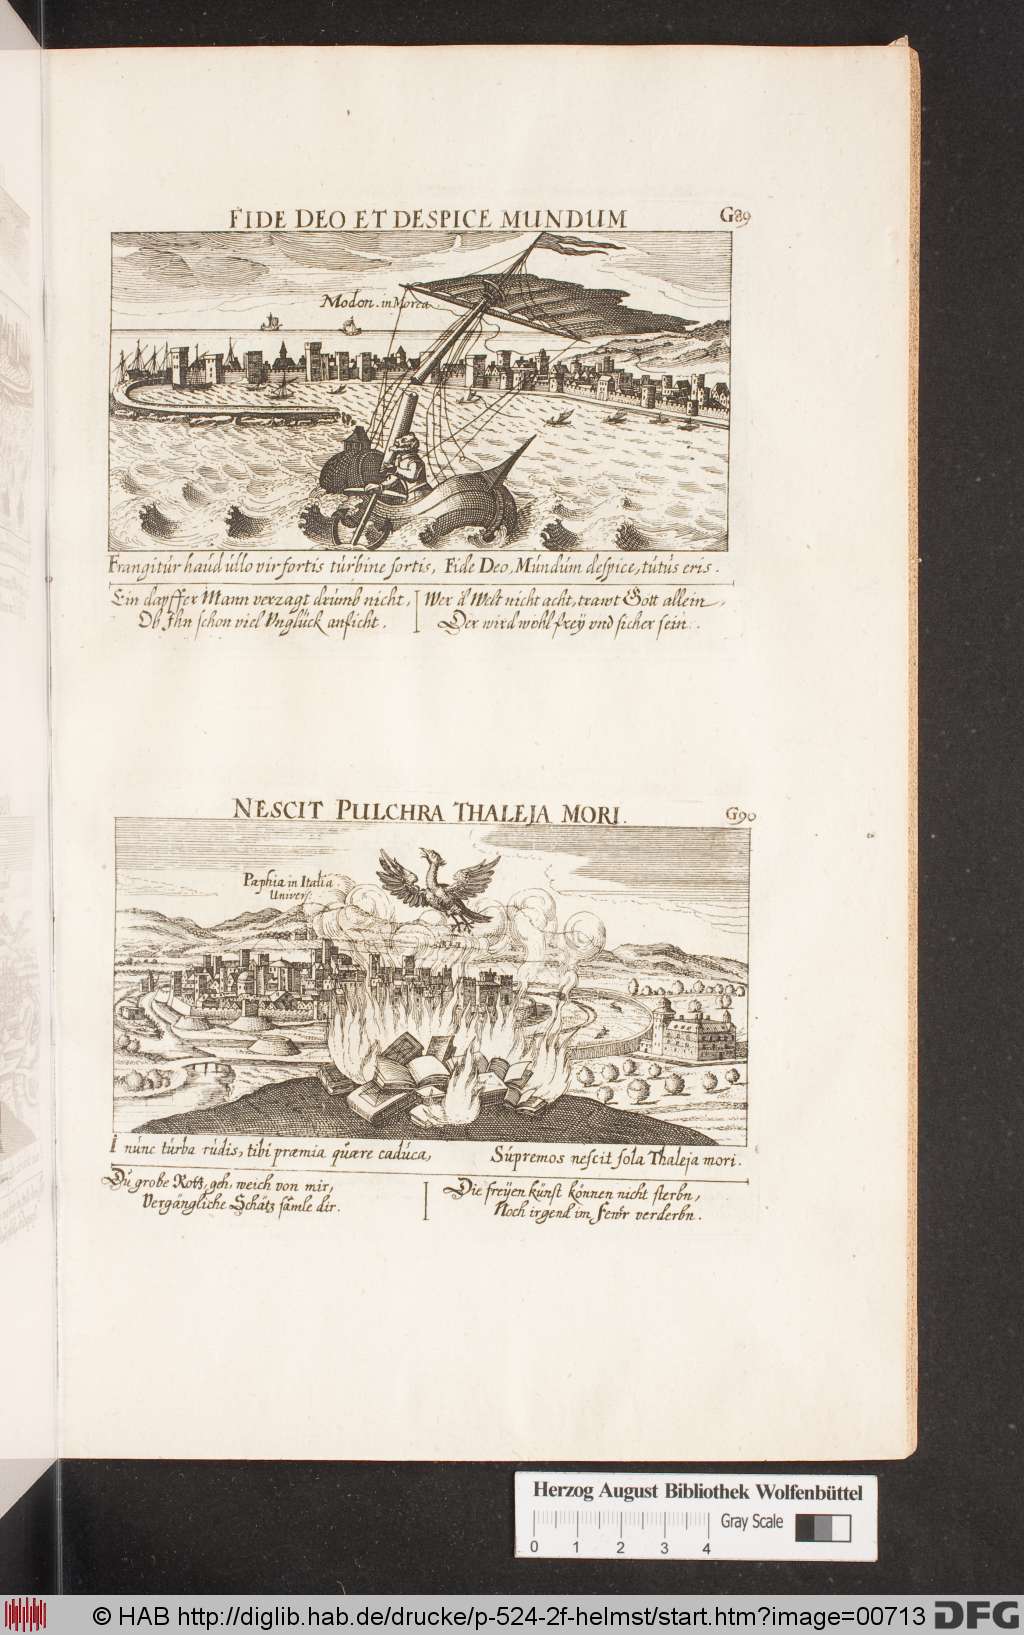 FIDE DEO ET DESPICE MUNDUM
G89
Modon. in Morea
Frangitur haud ullo vir fortis turbine fortis, Fide Deo, Mundum despice, tutus eris.
Ein dapffer Mann verzagt drumb nicht,
Ob Ihn schon viel Unglück anficht.
Wer d' Welt nicht acht, trawt Gott allein,
Der wird wohl frey und sicher sein.
NESCIT PULCHRA THALEJA MORI.
G90
Paphia in Italia
Univers.
I nunc turba rudis, tibi præmia quære caduca,
Supremos nescit sola Thaleja mori.
Du grobe Rott, geh, weich von mir,
Vergängliche Schätz samle dir.
Die freyen künst können nicht sterbn,
Noch irgend im Fewr verderbn.
Herzog August Bibliothek Wolfenbüttel
0 1 2 3 4
Gray Scale
© HAB http://diglib.hab.de/drucke/p-524-2f-helmst/start.htm?image=00713
DFG